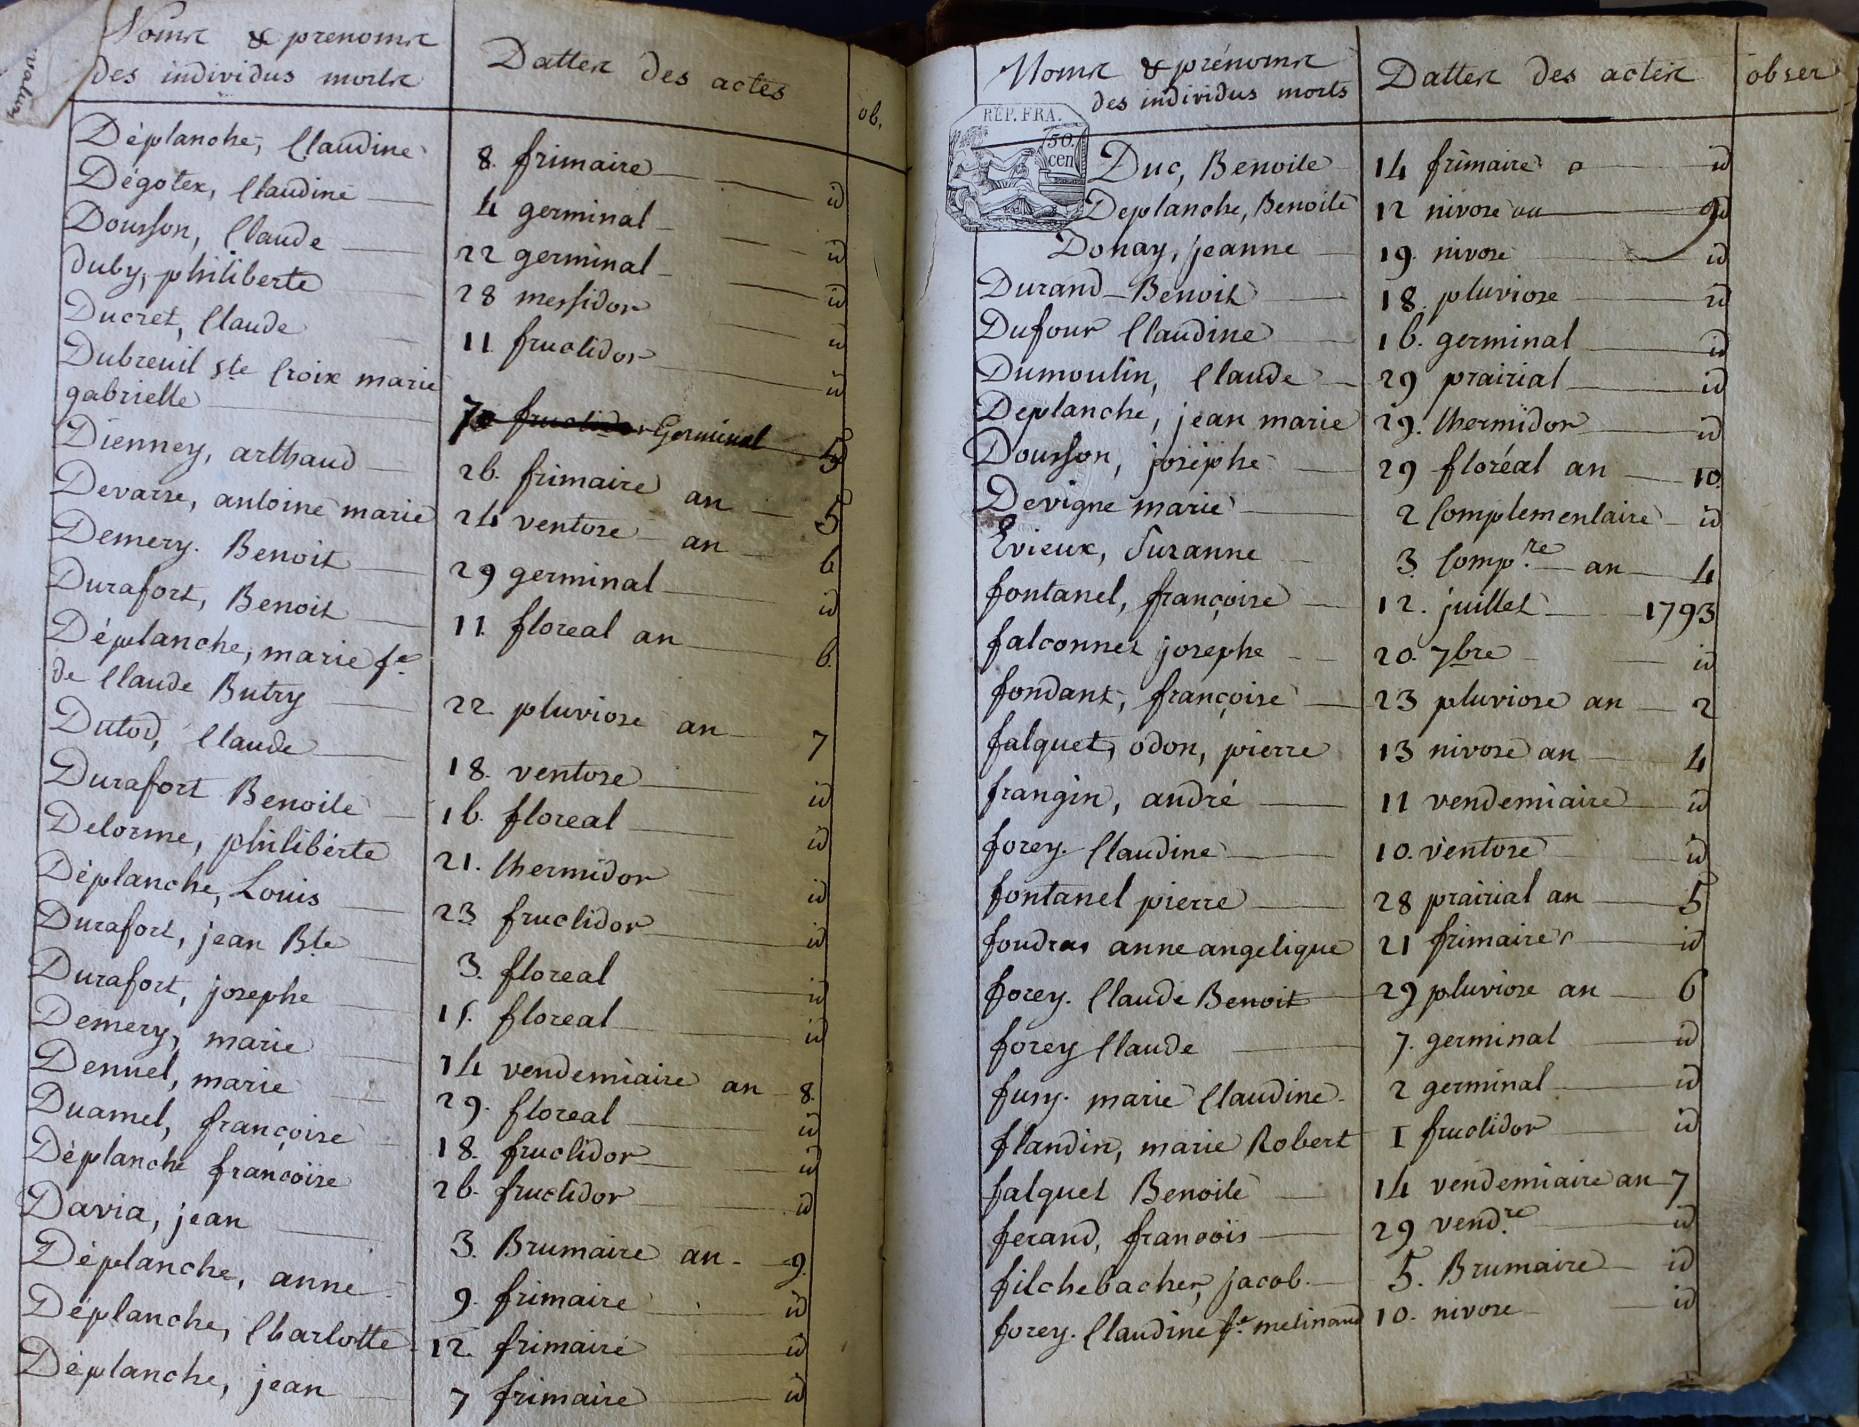 Noms & prenoms
des individus morts
Dattes des actes
ob.
Déplanche, Claudine 8. frimaire id
Dégotex, Claudine 4 germinal id
Dousson, Claude 22 germinal id
duby, philiberte 28 messidor id
Ducret, Claude 11 fructidor id
Dubreuil ste Croix marie
gabrielle 7 fructidor Germinal 5
Dienney, arthaud 26. frimaire an 5
Devarse, antoine marie 24 ventose an 6
Demery. Benoit 29 germinal id
Durafort, Benoit 11. floreal an 6.
Déplanche, marie fe
de Claude Butry 22 pluviose an 7
Dutod, Claude 18. ventose id
Durafort Benoite 16. floreal id
Delorme, philibérte 21. thermidor id
Déplanche, Louis 23 fructidor id
Durafort, jean Bte 3. floreal id
Durafort, josephe 15. floreal id
Demery, marie 14 vendemiaire an 8.
Denuel, marie 29. floreal id
Duamel, françoise 18. fructidor id
Déplanche francoise 26. fructidor id
Davia, jean 3. Brumaire an 9.
Déplanche, anne 9. frimaire id
Déplanche, Charlotte 12. frimaire id
Déplanche, jean 7 frimaire id
Noms & prénoms
des individus morts
Dattes des actes
obser
RÉP. FRA.
50.
cen
Duc, Benoite 14 frimaire id
Deplanche, Benoite 12 nivose an 9
Donay, jeanne 19. nivose id
Durand Benoit 18. pluviose id
Dufour Claudine 16. germinal id
Dumoulin, Claude 29 prairial id
Deplanche, jean marie 29. thermidor id
Dousson, joséphe 29 floréal an 10.
Devigne marie 2 Complementaire id
Evieux, Suzanne 3. Comp.re an 4
fontanel, françoise 12. juillet 1793
falconnet josephe 20. 7bre id
fondant, françoise 23 pluviose an 2
falquet, odon, pierre 13 nivose an 4
frangin, andré 11 vendemiaire id
forey. Claudine 10. ventose id
fontanel pierre 28 prairial an 5
foudras anne angelique 21 frimaire id
forey. Claude Benoit 29 pluviose an 6
forey Claude 7. germinal id
fusy. marie Claudine 2 germinal id
flandin, marie Robert 1 fructidor id
falquet Benoite 14 vendemiaire an 7
ferand, francois 29 vend.re id
filchebacher, jacob. 5. Brumaire id
forey. Claudine fe. melinand 10. nivose id